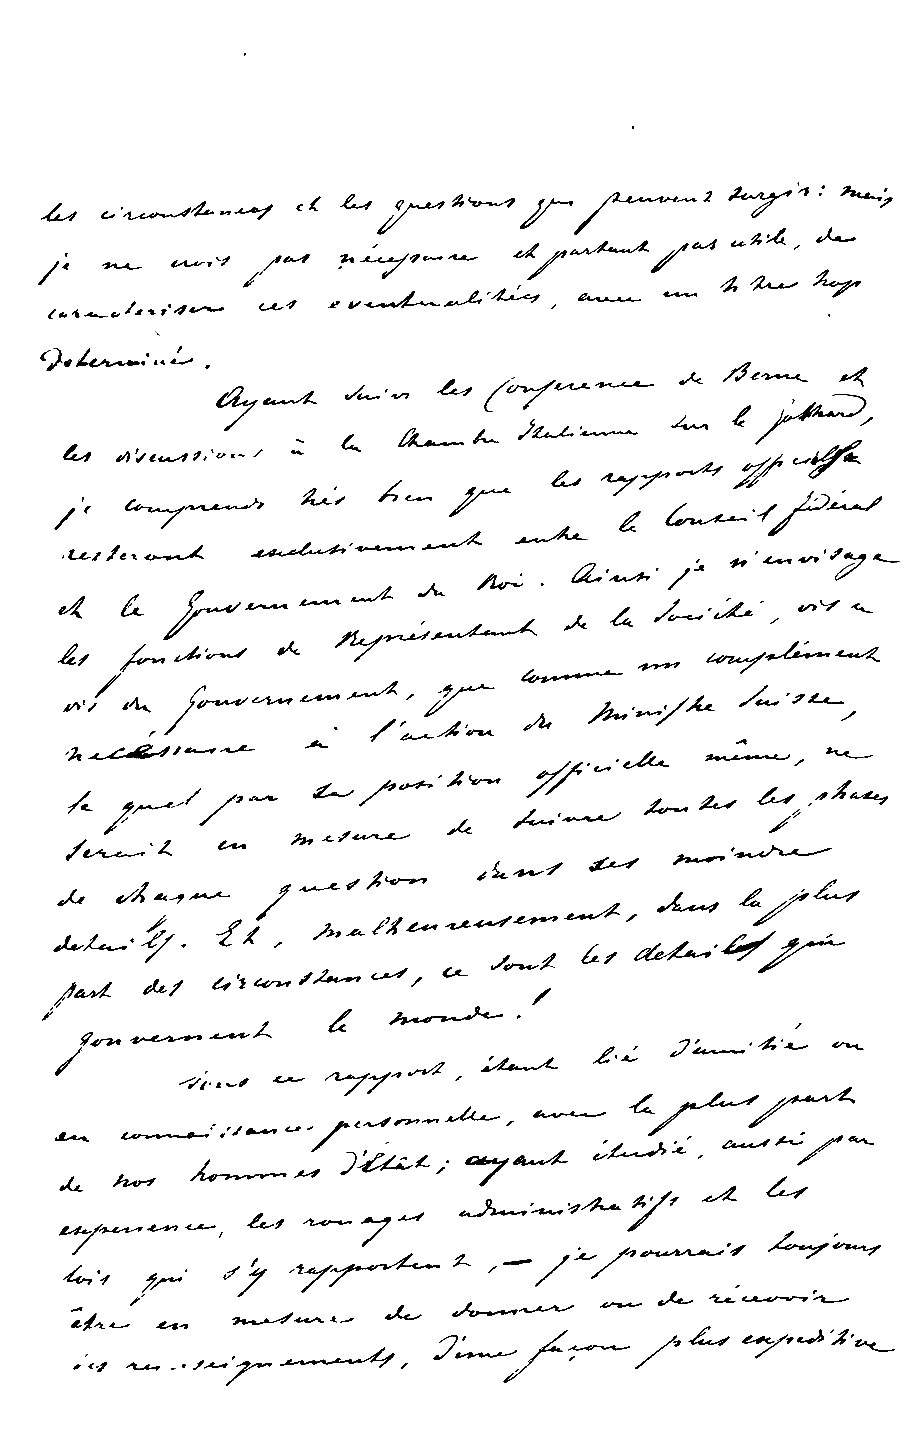 les circonstances et les questions que peuvent surgir: mais
je ne crois pas nécessaire et partant pas utile, de
caracteriser ces eventualitées, avec un titre trop
determiné.
Ayant suivi les Conference de Berne et
les discussions à la Chambre Italienne sur le Gotthard,
je comprends très bien que les rapports officiells
resteront exclusivement entre le Conseil fédéral
et le Gouvernement du Roi. Ainsi je n'envisage
les fonctions de Représentant de la Société, vis a
vis du Gouvernement, que comme un complément
necéssaire à l'action du Ministre Suisse,
le quel par sa position officielle même, ne
serait en mesure de suivre toutes les phases
de chaque question dans ses moindre
details. Et, malheureusement, dans la plus
part des circonstances, ce sont les details qui
gouvernent le monde!
Sous ce rapport, étant lié d'amitié ou
en connaissance personnelle, avec la plus part
de nos hommes d'Etât; ayant étudié, aussi par
experience, les rouages administratifs et les
lois qui s'y rapportent, — je pourrais toujours
être en mesure de donner ou de récevoir
des renseignements, d'une façon plus expeditive